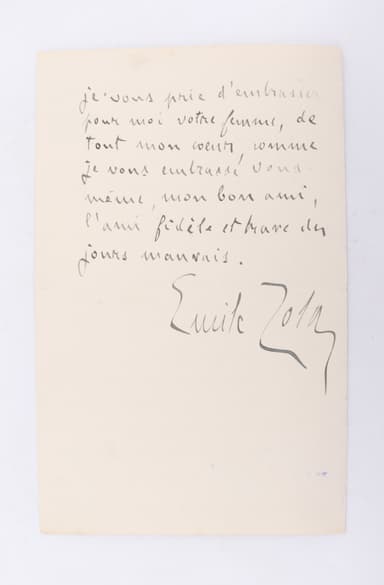 je vous prie d'embrasser
pour moi votre femme, de
tout mon cœur, comme
je vous embrasse vous-
même, mon bon ami,
l'ami fidèle et brave des
jours mauvais.
Emile Zola